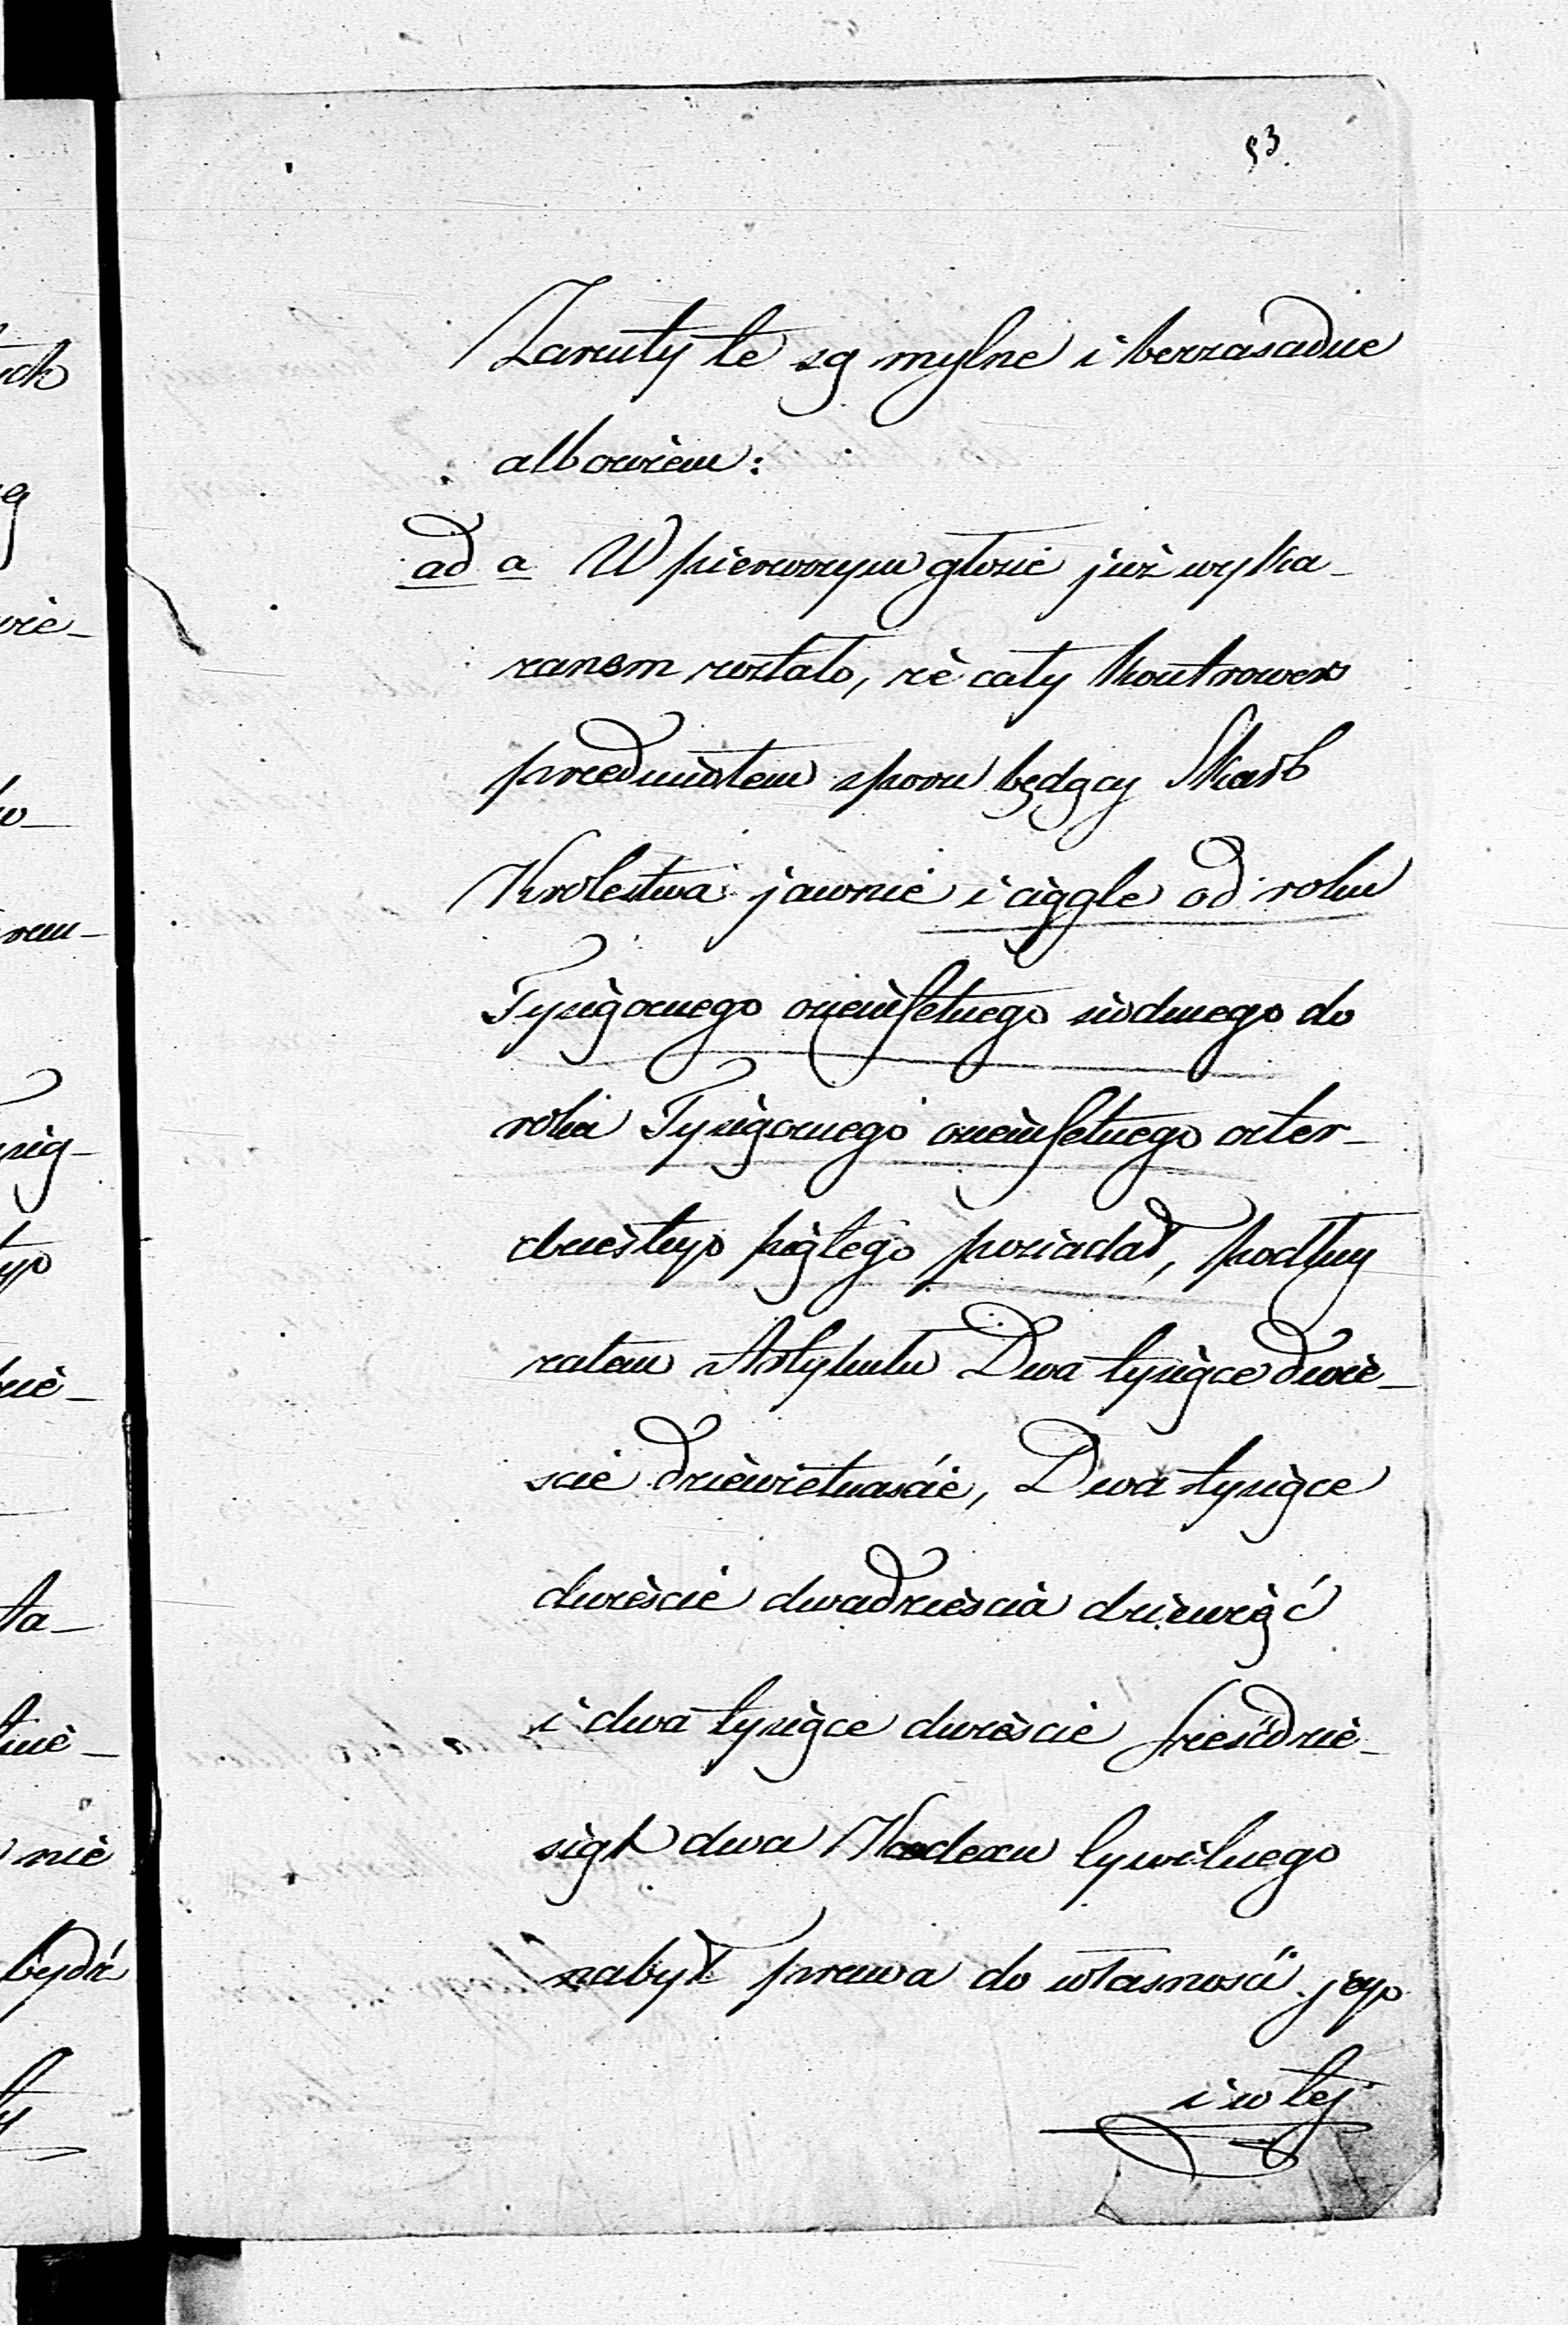 53.
Zarzuty te są mylne i bezzasadne
albowiem:
ad a W pierwszym głosie już wyka-
zanem zostało, że cały kontrowers
przedmiotem sporu będący Skarb
Krolestwa jawnie i ciągle od roku
Tysiącznego ośmsetnego siodmego do
roku Tysiącznego ośmsetnego czter-
dziestego piątego posiadał, podług
zatem Artykułu Dwa tysiące dwie-
ście dziewietnaście, Dwa tysiące
dwieście dwadzieścia dziewięć
i dwa tysiące dwieście sześćdzie-
siąt dwa Kodexu Cywilnego
nabył prawa do własności jego
i w tej